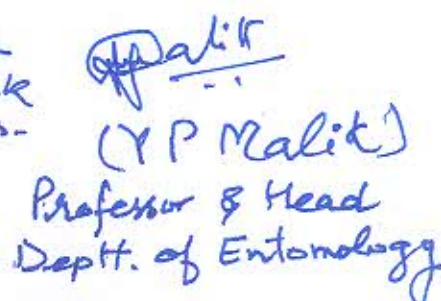 Malik
(Y P Malik)
Professor & Head
Deptt. of Entomology